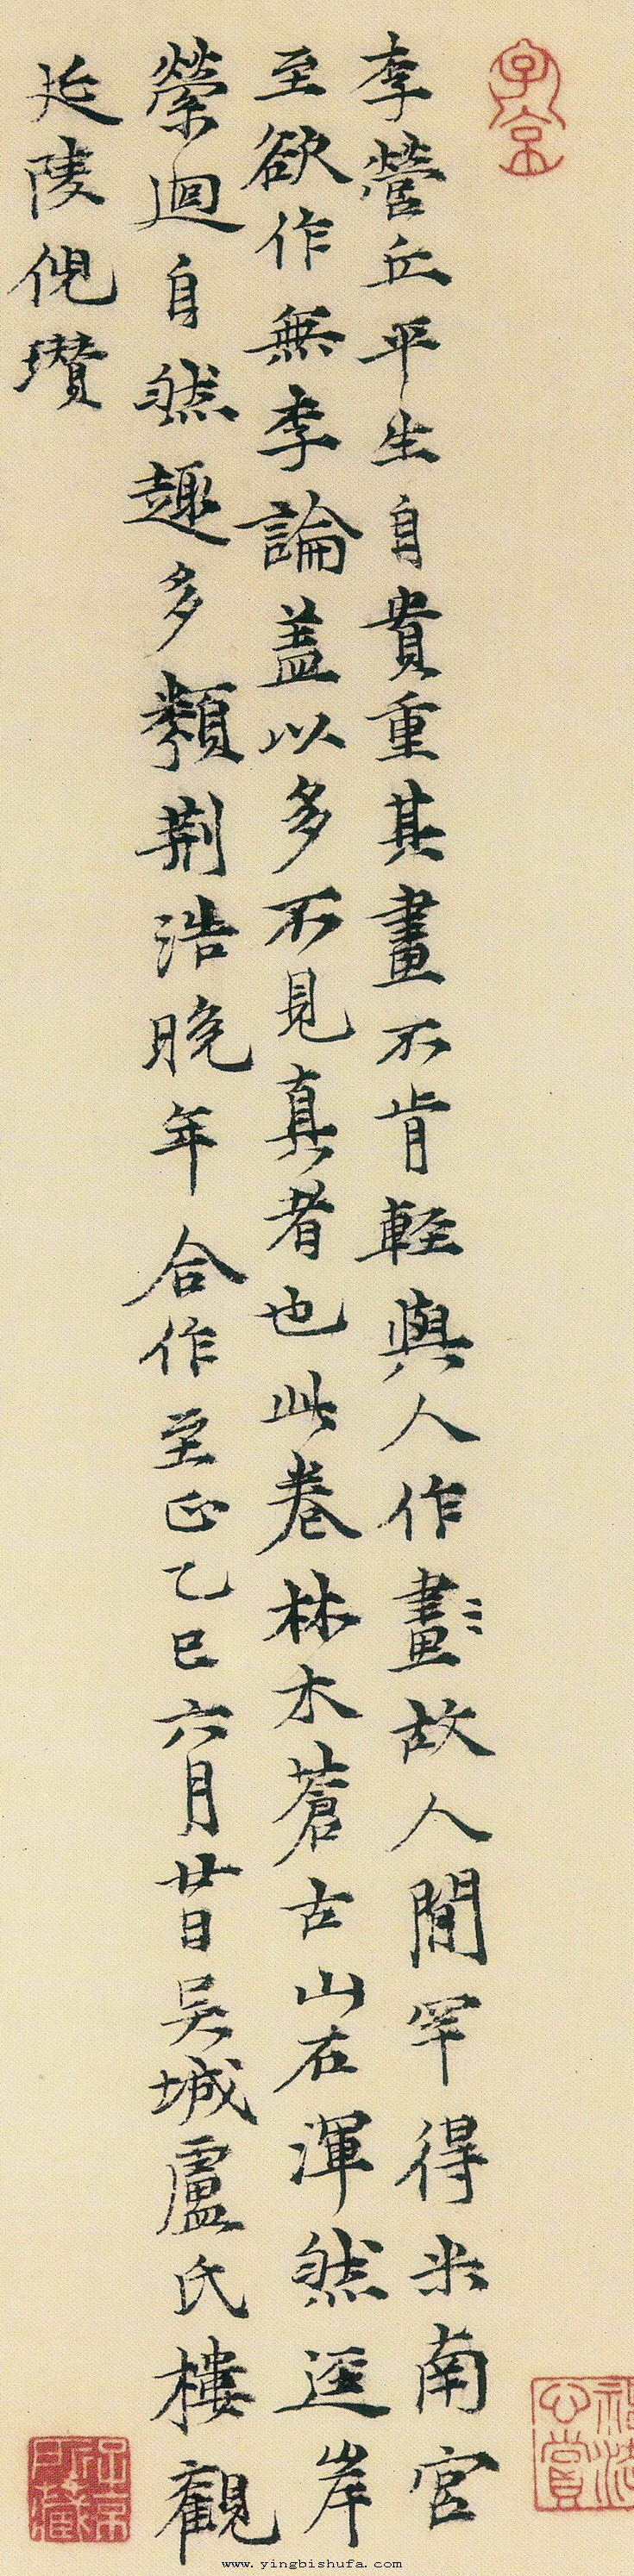 子京
李營丘平生自貴重其畫不肯輕與人作畫故人間罕得米南宮
至欲作無李論盖以多不見真者也此卷林木蒼古山石渾然迳岸
縈迴自然趣多類荆浩晚年合作至正乙巳六月廿日吴城盧氏樓觀
延陵倪瓚
www.yingbishufa.com